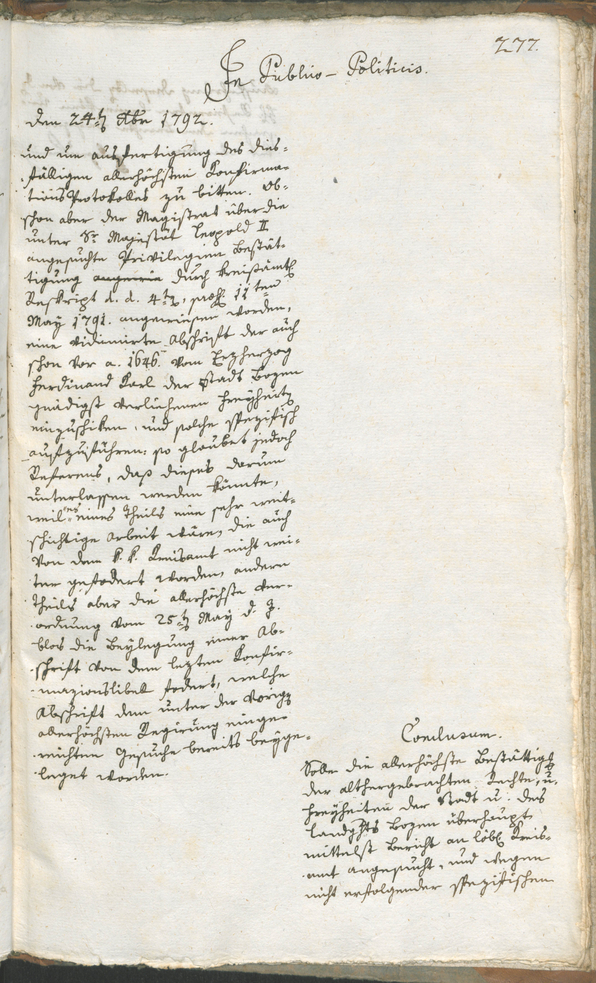 277.
In Publico-Politicis.
den 24ten 8br 1792.
und um ausfertigung des dies-
fälligen allerhöchsten Konfirma-
tions Protokolles zu bitten. Ob-
schon aber der Magistrat über die
unter Sr Majestät Leopold II
angesuchte Privilegien Bestät-
tigung durch kreisämtl
Reskript d. d. 4ten, 11ten
May 1791. angewiesen worden,
eine vidimirte Abschrift der auch
schon vor a. 1646. vom Erzherzog
Ferdinand Karl der Stadt Bozen
gnädigst verliehenen Freyheiten
einzuschiken, und solche spezifisch
aufzuführen: so glaubet jedoch
Referens, daß dieses darum
unterlassen werden könnte,
weil es eines Theils eine sehr weit-
schichtige Arbeit wäre, die auch
von dem k. k. Kreisamt nicht wei-
ter gefodert worden, andern
Theils aber die allerhöchste Ver-
ordnung vom 25ten May d. J.
blos die Beylegung einer Ab-
schrift von dem lezten Konfir-
mazionslibell fodert, welche
Abschrift dem unter der vorigen
allerhöchsten Regierung einge-
reichten Gesuche bereits beyge-
leget worden.
Conclusum.
Solle die allerhöchste Bestättigung
der althergebrachten Rechte, u.
Freyheiten der Stadt u. des
Landgchts Bozen überhaupt
mittelst Bericht an löbl Kreis-
amt angesucht, und wegen
nicht erfolgender spezifischen